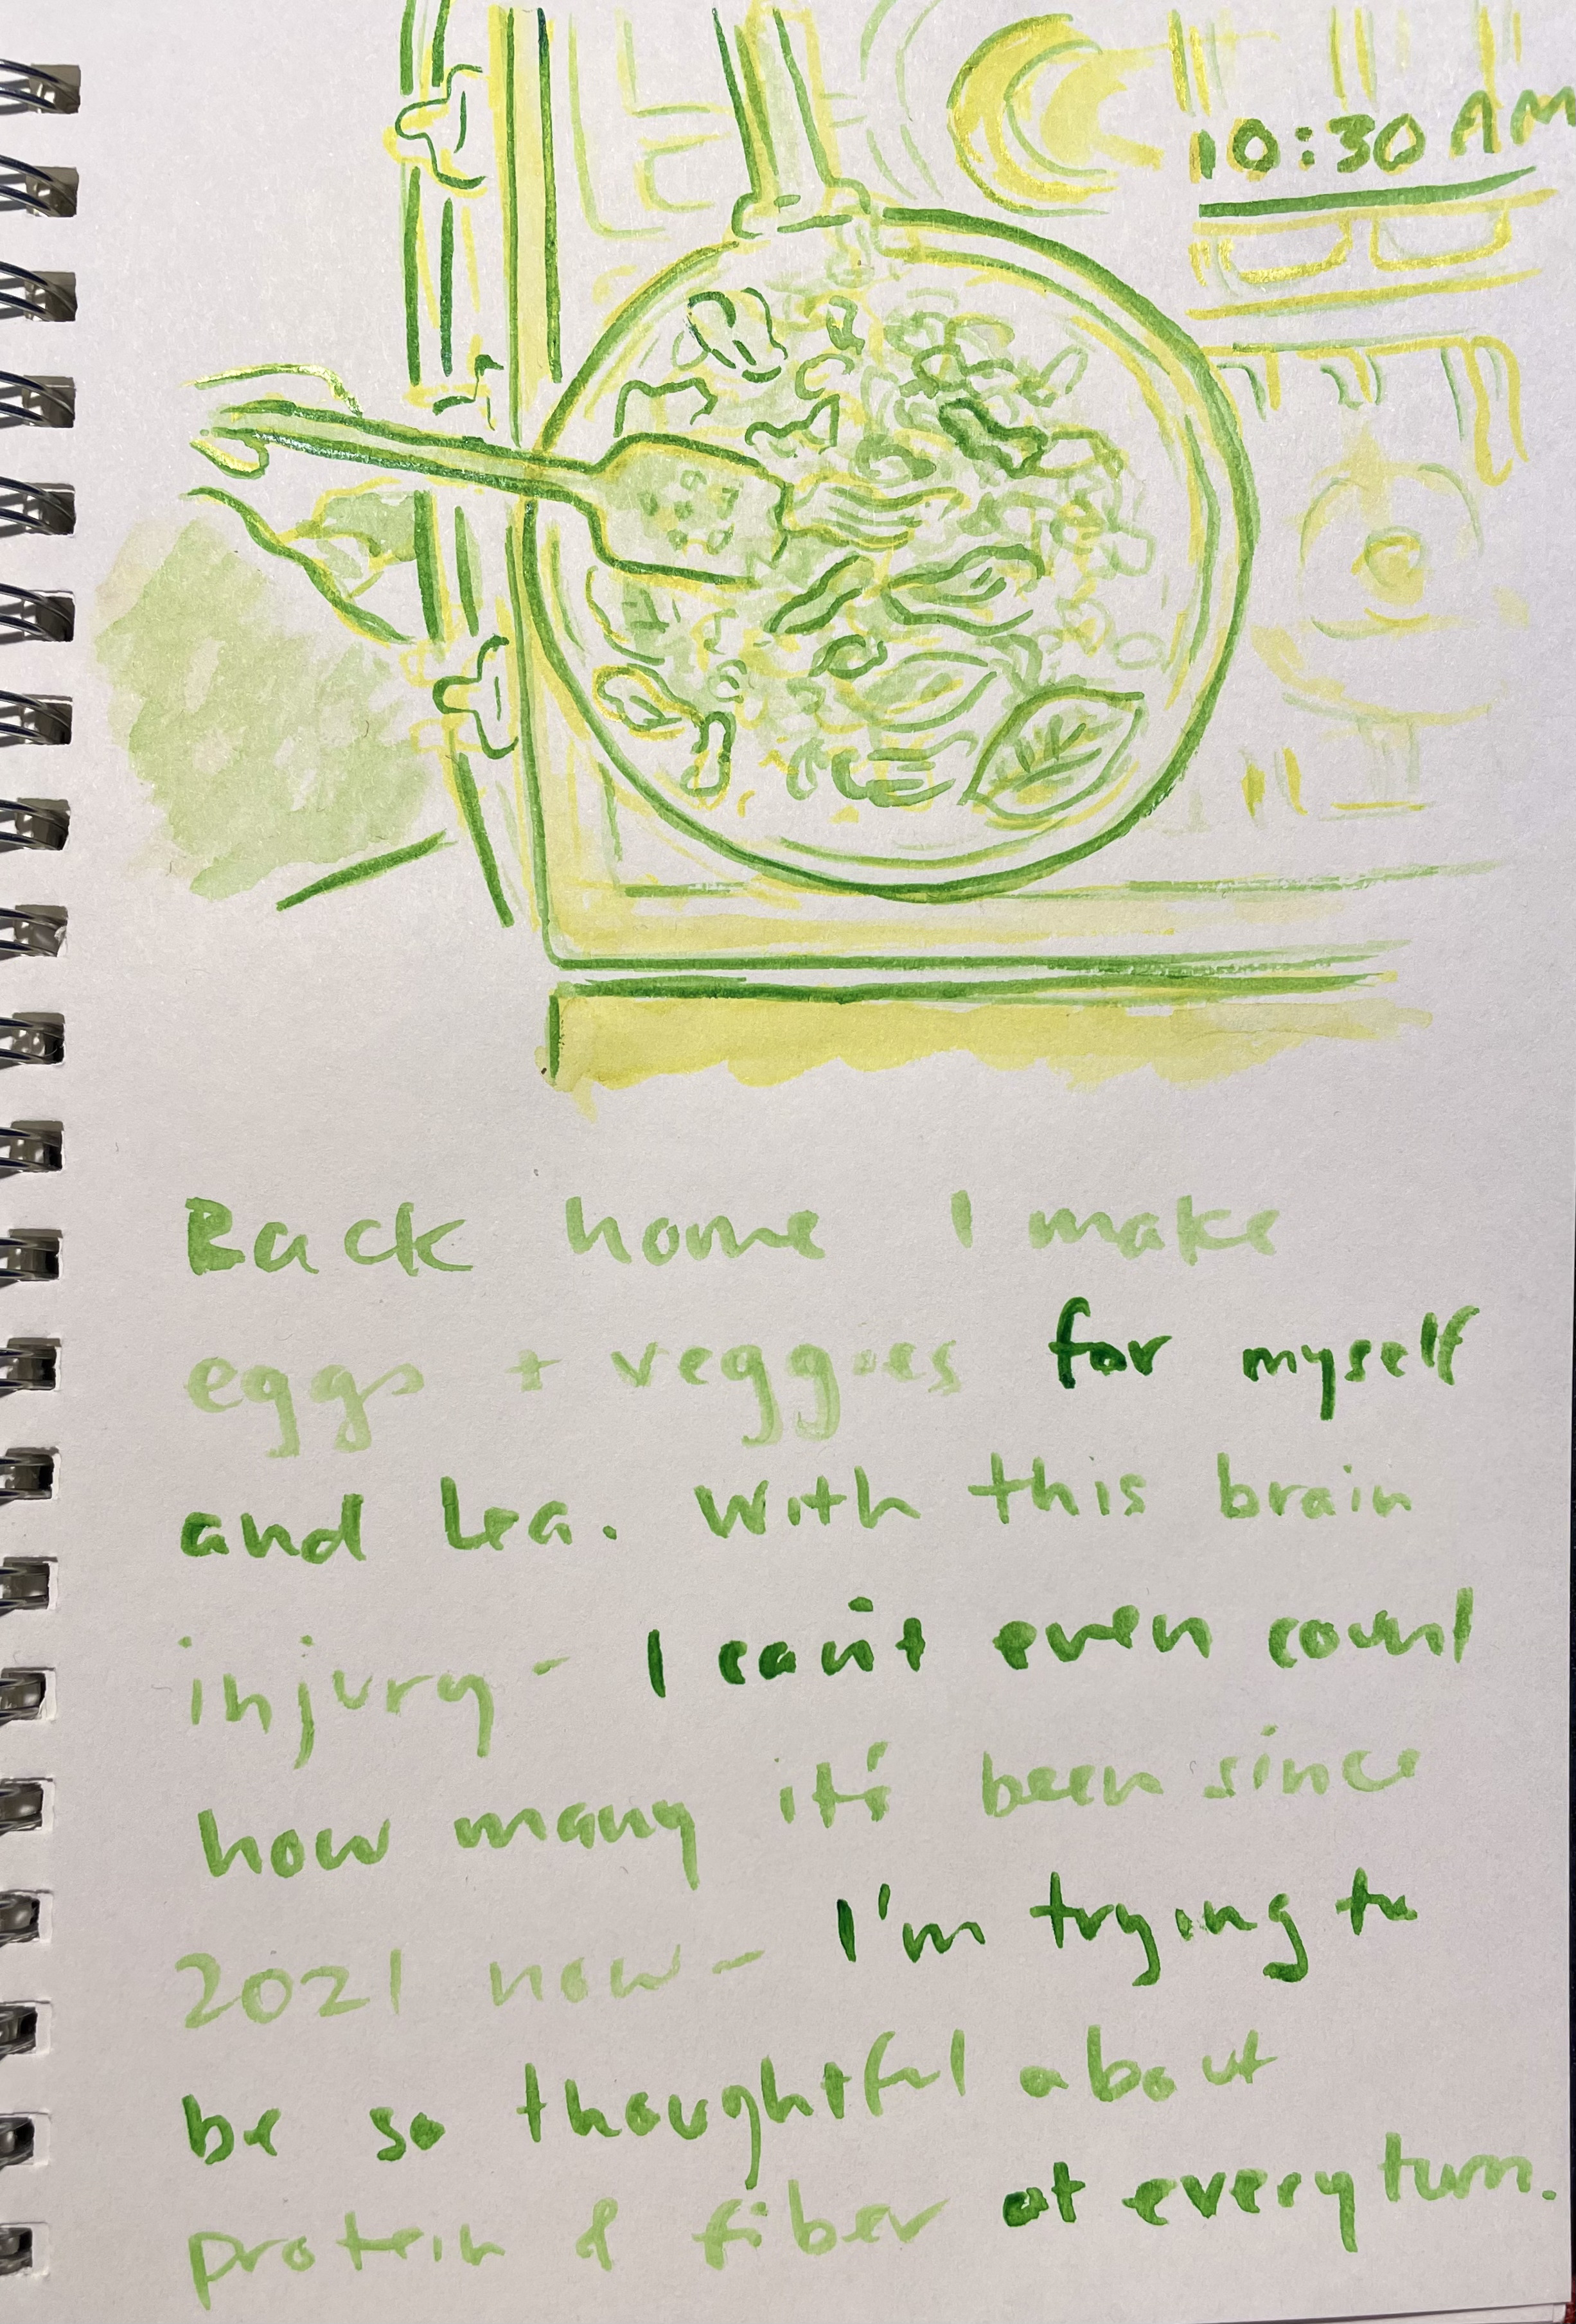 10:30 AM
Back home I make
eggs + veggies for myself
and Lea. With this brain
injury - I can't even count
how many it's been since
2021 now - I'm trying to
be so thoughtful about
protein & fiber at every turn.